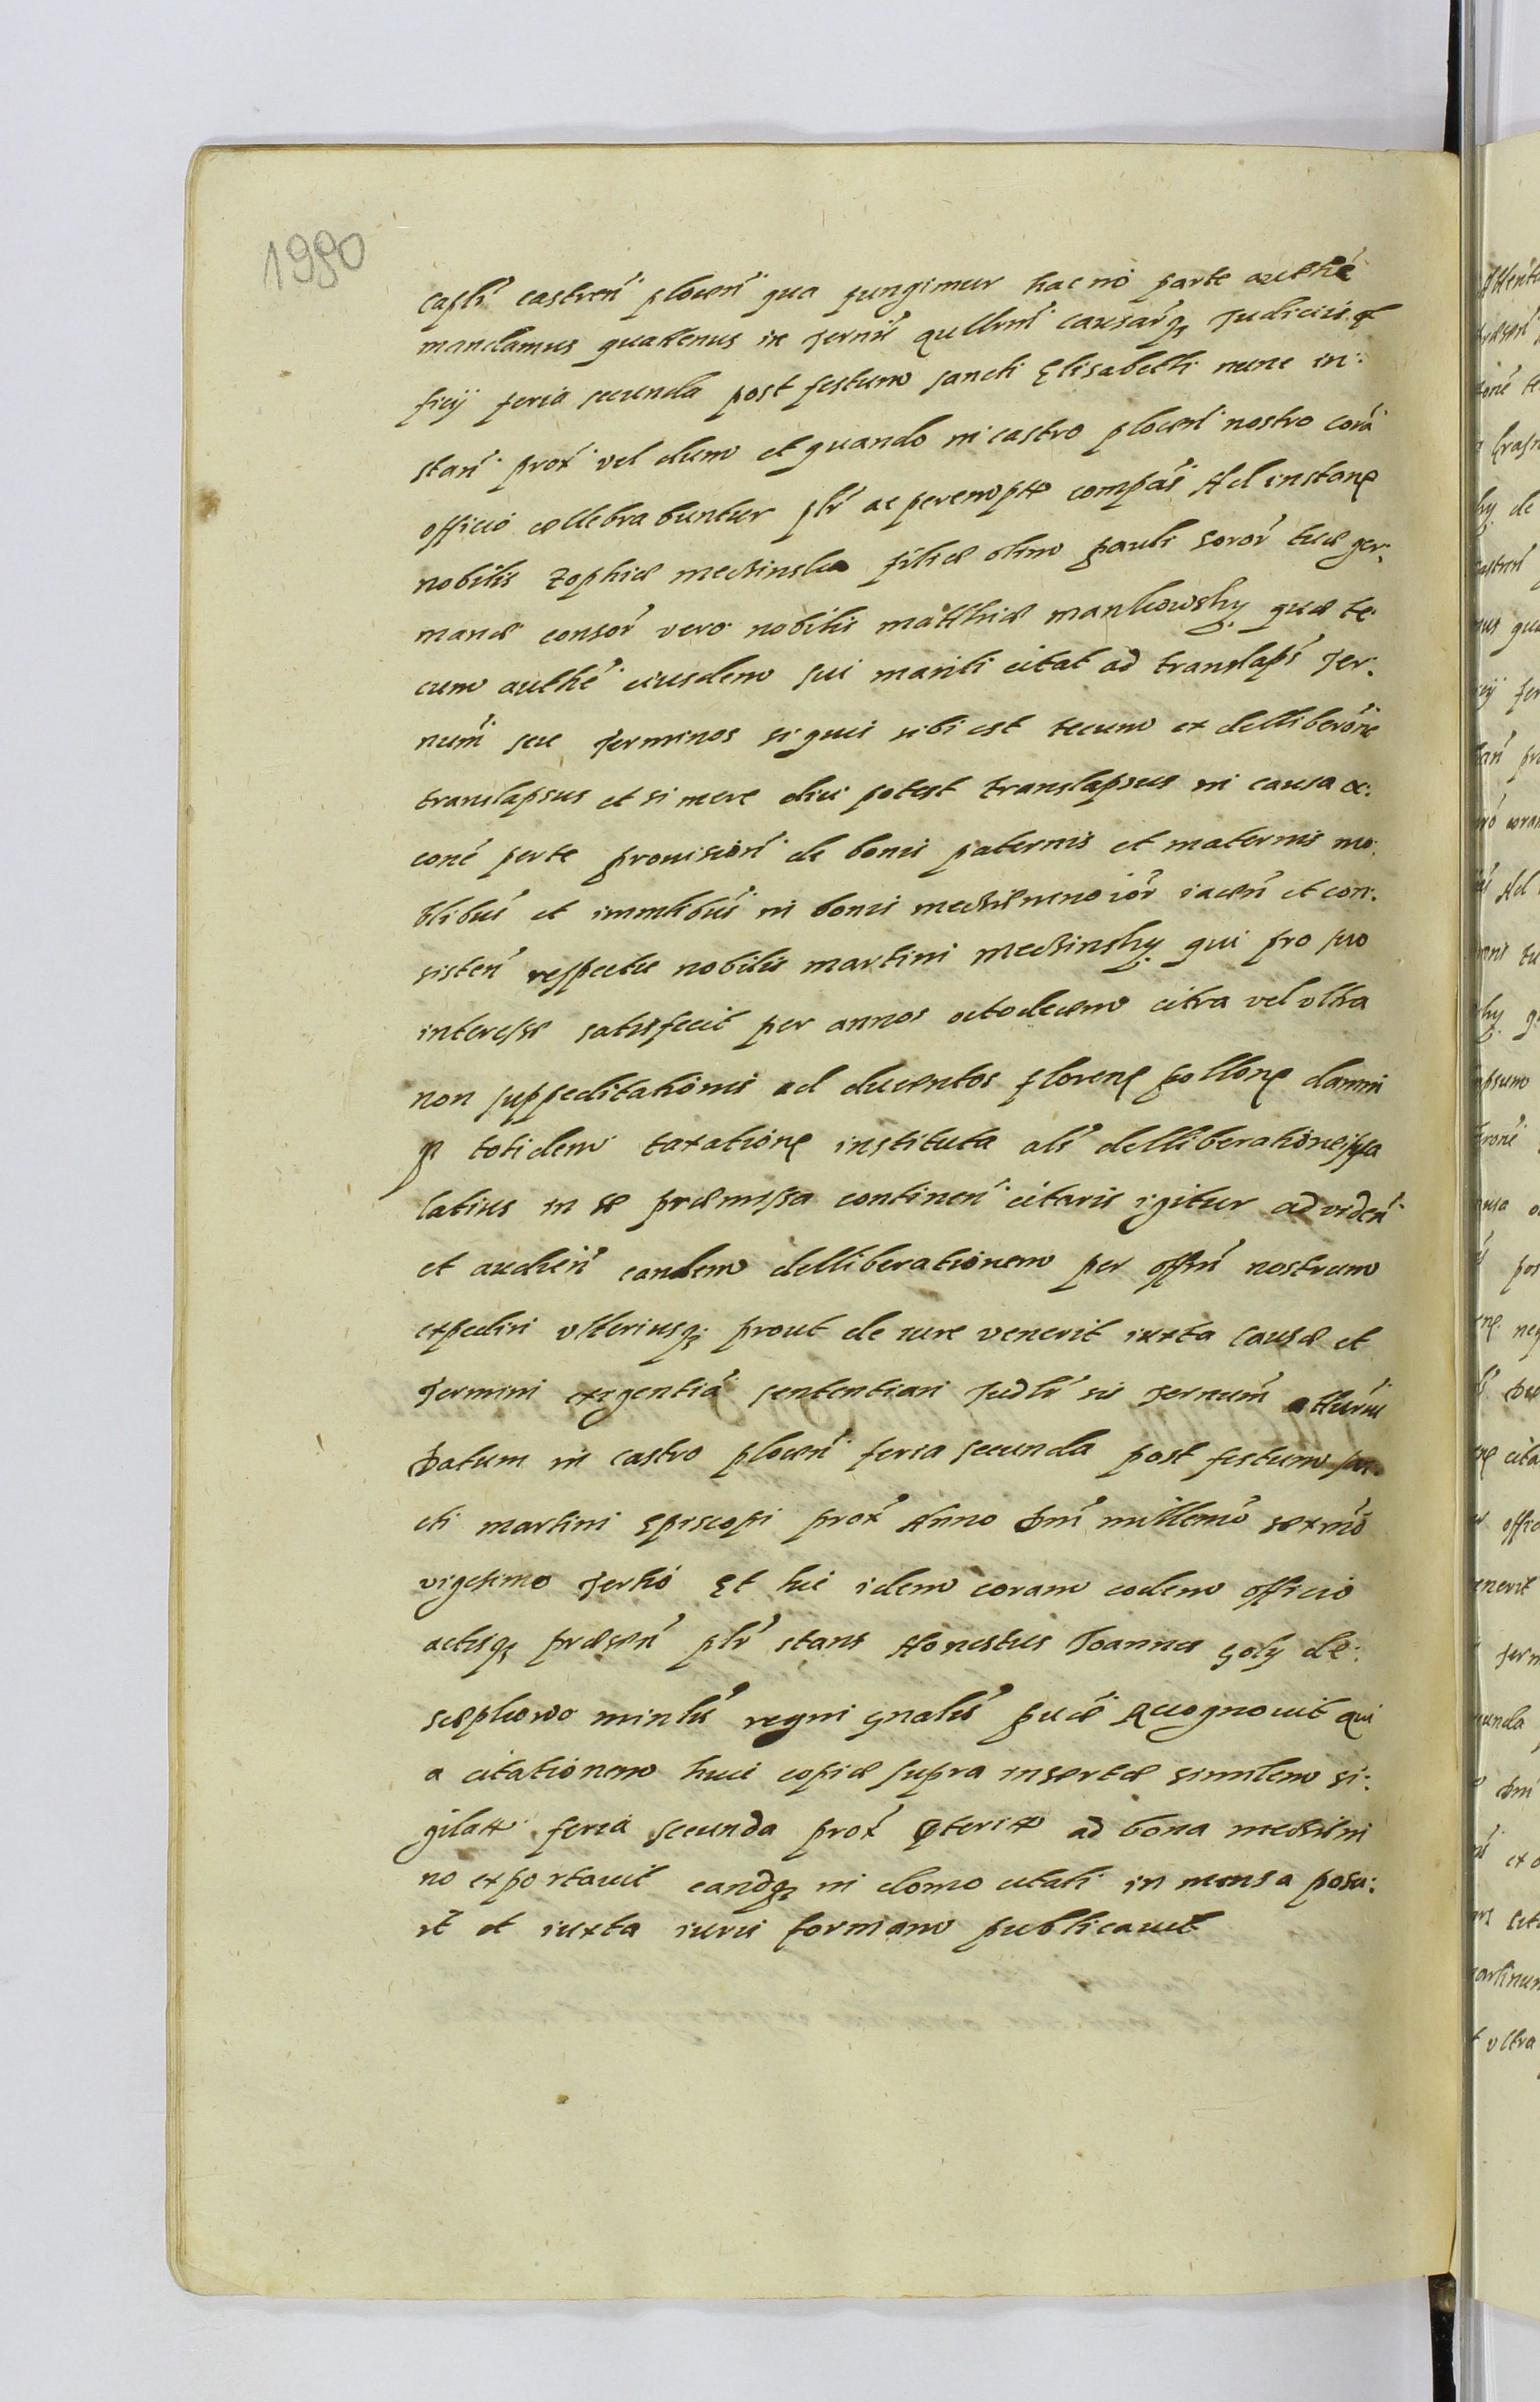 1980
caplis castren plocen qua fungimur hac in parte authe
mandamus quattenus in termis qullrm causarq Judiciis of
ficij feria secunda post festum sancti Elisabetth nunc in:
stan prox vel dum et quando in castro plocen nostro cora
officio cellebrabuntur plr ac peremptt compas Ad instanç
nobilis zophiæ mecżinska filiæ olim pauli soror tuæ ger:
manæ consor vero nobilis matthiæ mankowsky quæ te
cum authe eiusdem sui mariti citat ad translaps Ter:
num seu Terminos si qui sibi est tecum ex delliberone
translapsus et si mere dici potest translapsus in causa ac:
cone parte prouision de bonis paternis et maternis mo:
blibus et immlibus in bonis ior iacen et con:
sisten respectu nobilis martini mecżinsky qui pro suo
interesse satisfecit per annos octodecem citra vel vltra
non suppeditationis ad ducentos florenç pollonç damni
totidem taxationç instituta als delliberatione ipsa
latius in se præmissa continen citaris igitur ad viden
et audien eandem delliberationem per offm nostrum
expediri vlteriusq prout de iure venerit iuxta causæ et
Termini exigentia sententiari Judlr sis Ternum atturus
Datum in castro plocen feria secunda post festum san
cti martini Episcopi prox Anno Dni millemo sexmo
vigesimo Tertio Et hic idem coram eodem officio
actisq præsen plr stans Honestus Joannes Goly de:
sczepkowo minlis regni gnalis publce Recognouit qui
a citationem huic copiæ supra insertæ similem si:
gilatt feria secunda prox præteritt ad bona
no exportauit eandq in domo citati in mensa posu:
it et iuxta iuris formam publicauit